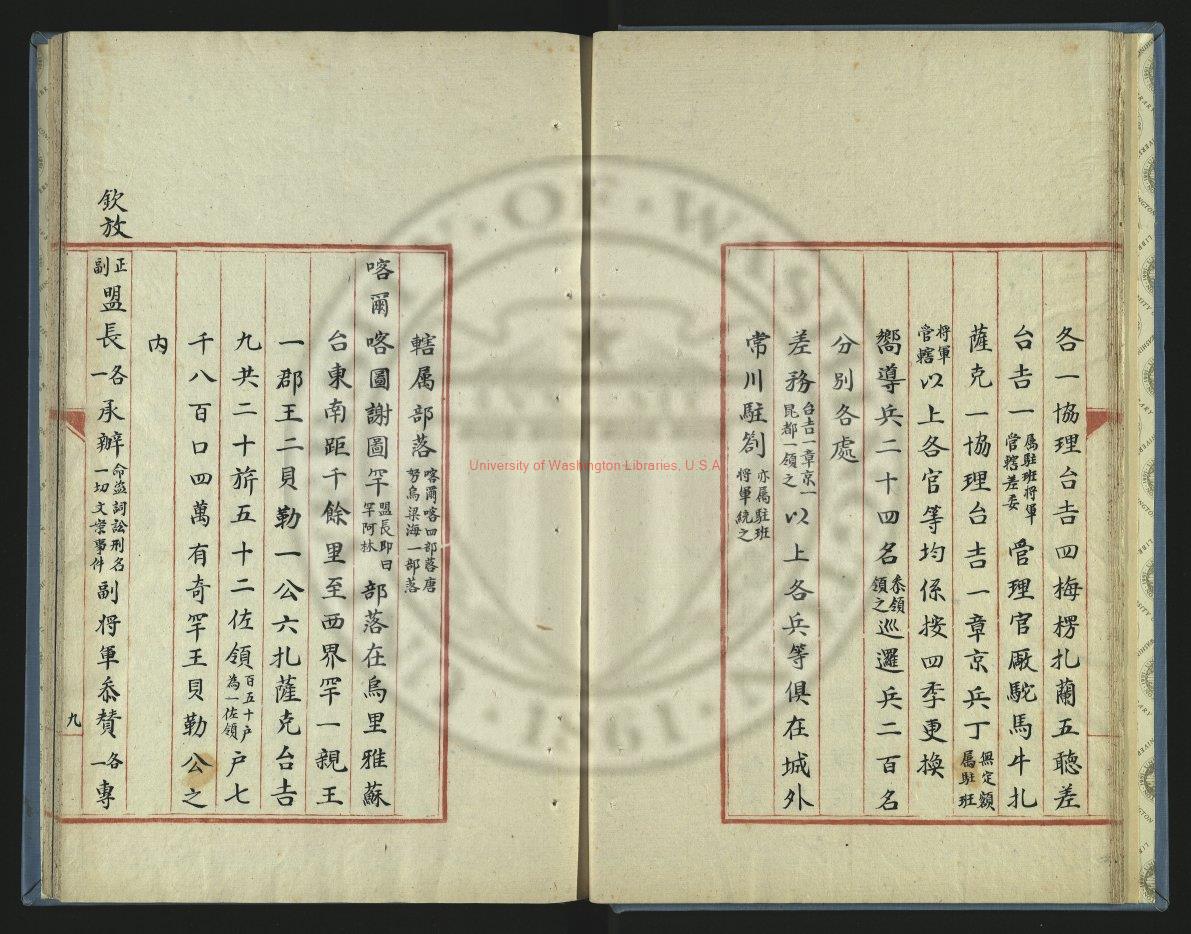 各一協理台吉四梅楞扎蘭五聽差
台吉一属駐班將軍管轄差委管理官廠駝馬牛扎
薩克一協理台吉一章京兵丁無定額属駐班
將軍管轄以上各官等均係按四季更換
嚮導兵二十四名叅領領之巡邏兵二百名
分別各處
差務台吉一章京一昆都一領之以上各兵等俱在城外
常川駐劄亦属駐班將軍統之
轄属部落喀爾喀四部落唐努烏梁海一部落
喀爾喀圖謝圖罕盟長即曰罕阿林部落在烏里雅蘇
台東南距千餘里至西界罕一親王
一郡王二貝勒一公六扎薩克台吉
九共二十旂五十二佐領百五十户為一佐領户七
千八百口四萬有奇罕王貝勒公之
内
欽放
正副盟長各一承辦命盜詞訟刑名一切文案事件副將軍叅賛各一專
九
University of Washington Libraries, U.S.A.